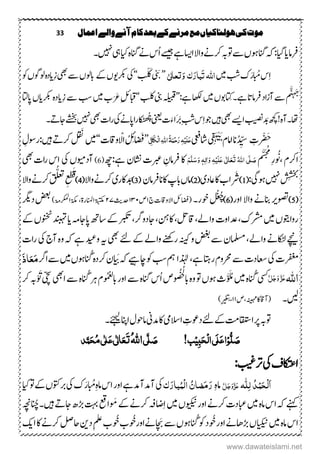 موت کی ہولناکیاں مع مرنے کے بعد کام آنے والے اعمال 33
فرمایا گیا: گناہوں سے توبہ کرنے والا ایسا ہے جیسے اُس نے گناہ کیا ہی نہیں۔
اِس مُبارک شب میں اللہ تَبَارَکَ وَتَعَالٰی ”بنی کَلْب“ کی بکریوں کے بالوں سے بھی زیادہ لوگوں کو
جہنّم سے آزاد فرماتا ہے۔ کتابوں میں لکھا ہے: ”قبیلۂ بنی کلب“ قبائلِ عرب میں سب سے زیادہ بکریاں پالتا
تھا۔ آہ! کچھ بدنصیب ایسے بھی ہیں جو اِس شبِ براءَت یعنی چھٹکارا پانے کی رات بھی نہیں بخشے جاتے۔
حضرتِ سیّدُنا امام بیہقی شافعی رَحْمَۃُ اللہِ تَعَالٰی عَلَیْہِ ”فضائلُ الاوقات“ میں نقل کرتے ہیں: رسولِ
اکرم، نُورِ مُجَسَّم صَلَّی اللہُ تَعَالٰی عَلَیْہِ وَاٰلِہٖ وَسَلَّم کا فرمانِ عبرت نشان ہے: چھ(۶) آدمیوں کی اس رات بھی
بخشش نہیں ہوگی: (۱)شراب کا عادی (۲)ماں باپ کا نافرمان (۳)بدکاری کرنے والا (۴)قطعِ تعلّق کرنے والا
(۵)تصویر بنانے والا اور (۶)چُغُل خور۔ (فضائل الاوقات ج۱ ص۱۳۰ حدیث ۲۷ مکتبۃ المنارۃ، مکۃ المکرمۃ) بعض دیگر
روایتوں میں مشرک، عداوت والے، قاتل، کاہن، جادوگر، تکبُّر کے ساتھ پاجامہ یا تہبند ٹخنوں کے
نیچے لٹکانے والے، مسلمان سے بغض و کینہ رکھنے والے کے لئے بھی یہ وعید ہے کہ وہ آج کی رات
مغفرت کی سعادت سے محروم رہتا ہے، لہٰذا ہم سب کو چاہیے کہ بیان کردہ گناہوں میں سے اگر مَعَاذَ
اللہ عَزَّوَجَلَّ کسی گناہ میں مُلوَّث ہوں تو وہ بِالخصوص اُس گناہ سے اور بِالعموم ہر گناہ سے ابھی سچّی توبہ کر
لیں۔ (آقا کا مہینہ، ص۱۱ بتغیر)
توبہ پر استقامت کے لئے دعوتِ اسلامی کا مدنی ماحول اپنا لیجئے۔
صَلُّوْا عَلَی الْحَبِیْب! صَلَّی اللہُ تَعَالٰی عَلٰی مُحَمَّد
اعتکاف کی ترغیب:
اَلْحَمْدُ لِلّٰہِ عَزَّوَجَلَّ ماہِ رَمَضَانُ الْمُبَارَک کی آمد آمد ہے اور اس ماہِ مُبارک کی برکتوں کے تو کیا
کہنے کہ اس ماہ میں عبادت کرنے اور نیکیوں میں اِضافہ کرنے کے مواقع بہت بڑھ جاتے ہیں۔ چُنانچِہ
اس ماہ میں نیکیاں بڑھانے اور خود کو گناہوں سے بچانے اور خُوب خُوب علمِ دین حاصل کرنے کا ایک
www.dawateislami.net